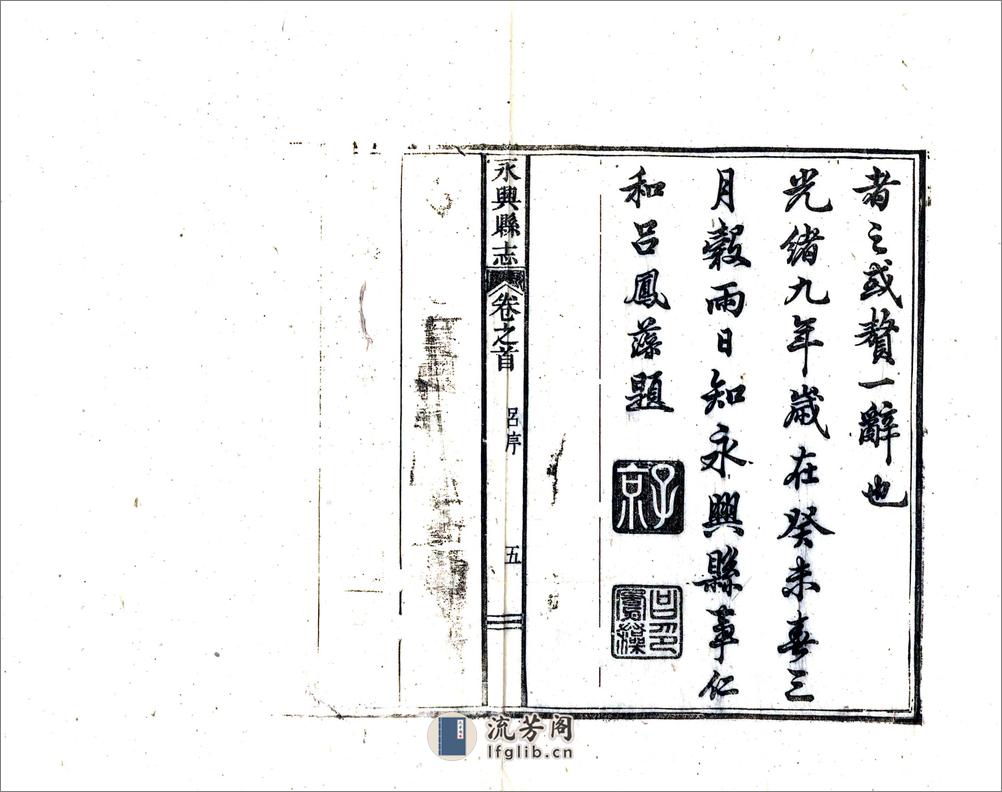 者之或贅一辭也
光緒九年歲在癸未春三
月穀雨日知永興縣事仁
和呂鳳藻題
子京
永興縣志
卷之首
呂序
五
流芳阁
lfglib.cn